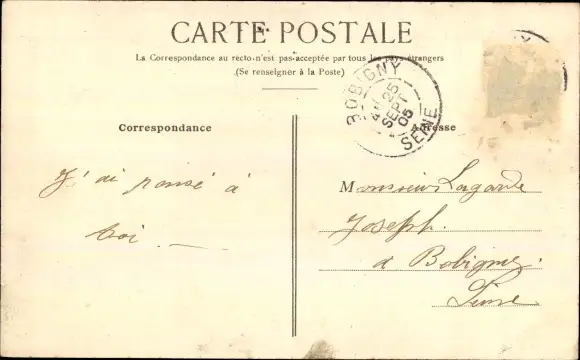 CARTE POSTALE
La Correspondance au recto n'est pas acceptée par tous les pays étrangers
(Se renseigner à la Poste)
BOBIGNY
4 25
SEPT
05
SEINE
Correspondance
Adresse
J'ai pensé à
toi. —
Monsieur Lagarde
Joseph.
à Bobigny.
Seine